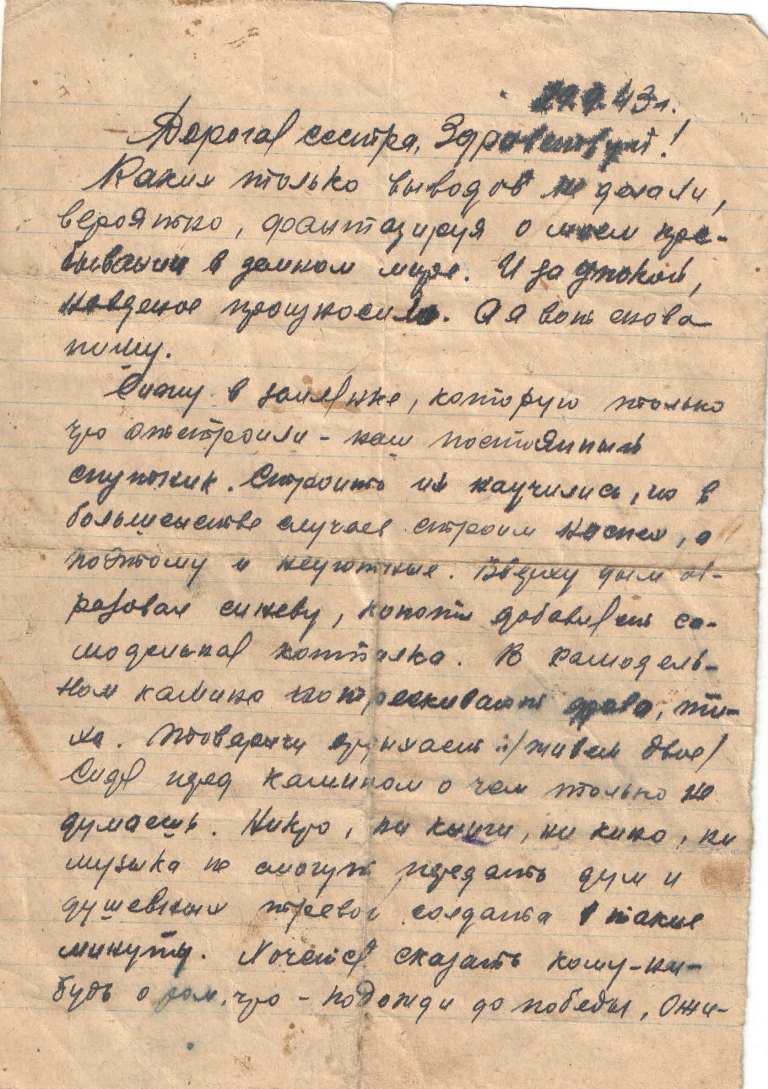 43г.
Дорогая сестра, Здравствуй!
Каких только выводов не делали,
вероятно, фантазируя о моем пре-
бывании в земном мире. И за упокой,
произносили. А я вот снова
пишу.
Сижу в землянке, которую только
что отстроили - наш постоянный
спутник. Строить их научились, но в
большинстве случаев строим наспех, а
поэтому и неуютные. Вверху дым об-
разовал синеву, копоти добавляет са-
модельная коптилка. В самодель-
ном камине потрескивают дрова, ти-
хо. Товарищ отдыхает /живем двое/
Сидя перед камином о чем только не
думаешь. Никто, ни книги, ни кино, ни
музыка не смогут передать дум и
душевных тревог солдата в такие
минуты. Хочется сказать кому-ни-
будь о том, что - подожди до победы, ожи-